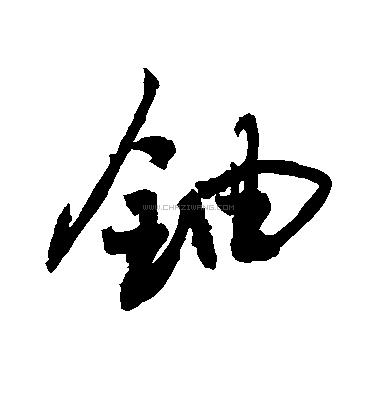 鈾
WWW.CHAZIWANG.COM